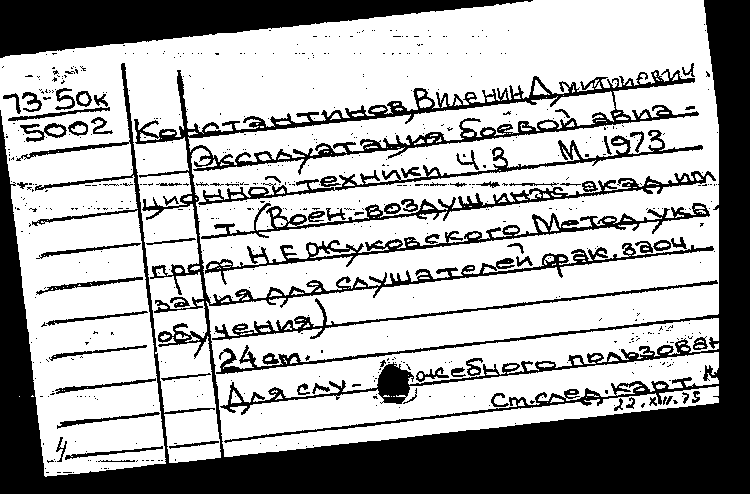 73-50к
5002
Константинов, Виленин Дмитриевич.
Эксплуатация боевой авиа-
ционной техники. Ч.3   М., 1973
т. (Воен.-воздуш. инж. акад. им
проф. Н.Е Жуковского. Метод. ука-
зания для слушателей фак. заоч.
обучения).
24 ст.
Для слу- жебного пользован
Ст. след. карт.
22.XII.73
4